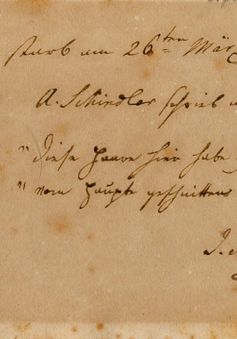 starb am 26ten März
A. Schindler schrieb
" diese Haare hier habe
" vom Haupte geschnitten